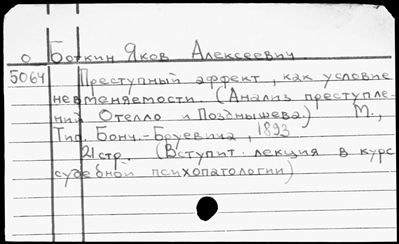 О Боткин Яков Алексеевич.
5064 Преступный аффект, как условие
невменяемости. (Анализ преступле-
ний Отелло и Позднышева.) М.,
Тип. Бонч.-Бруевича, 1893
21 стр. (Вступит. лекция в курс
судебной психопатологии)